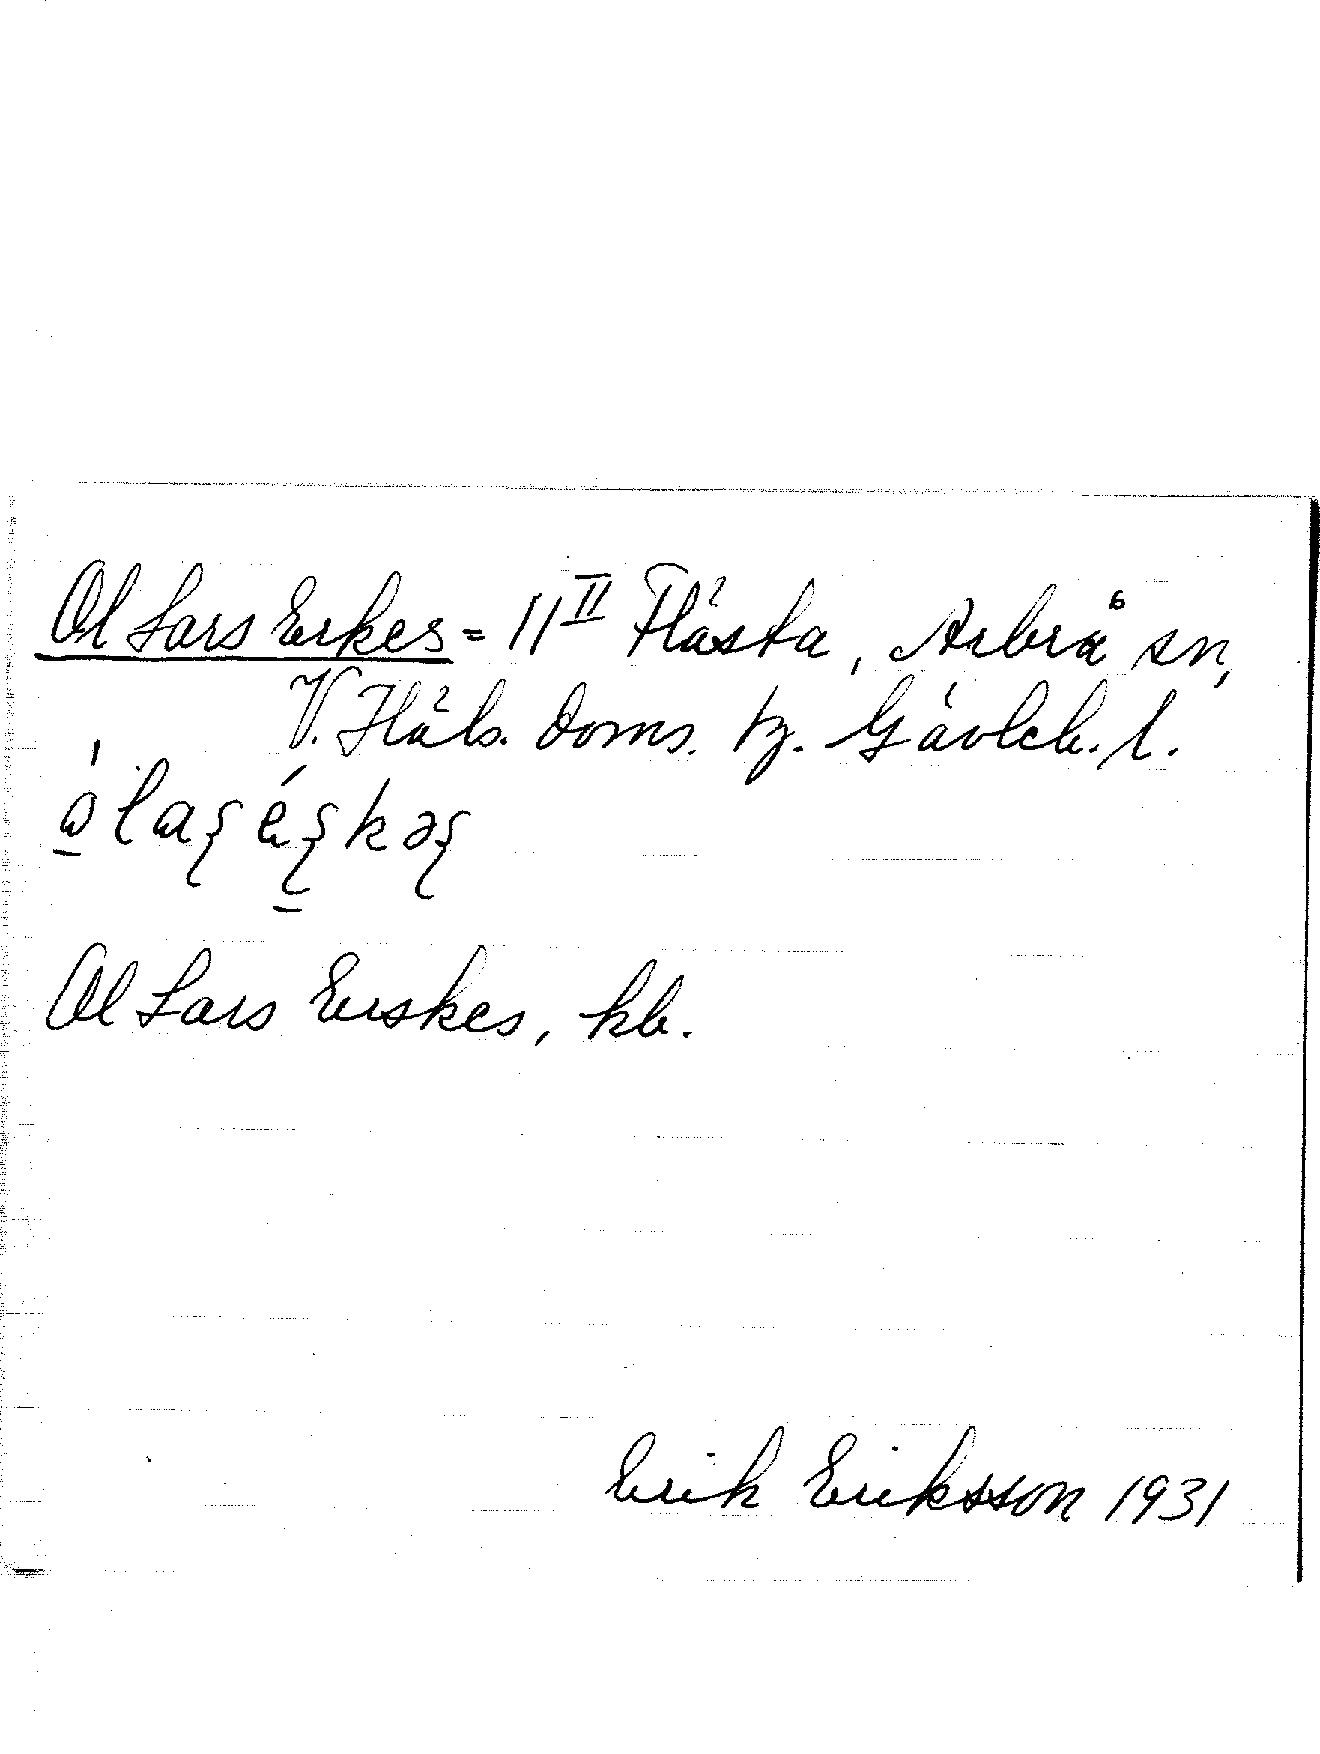 Ol Lars Erkes = 11 II Flästa, Arbrå sn,
V. Häls. doms. tz. Gävleb. l.
Ol Lars Erskes, kb.
Erik Eriksson 1931